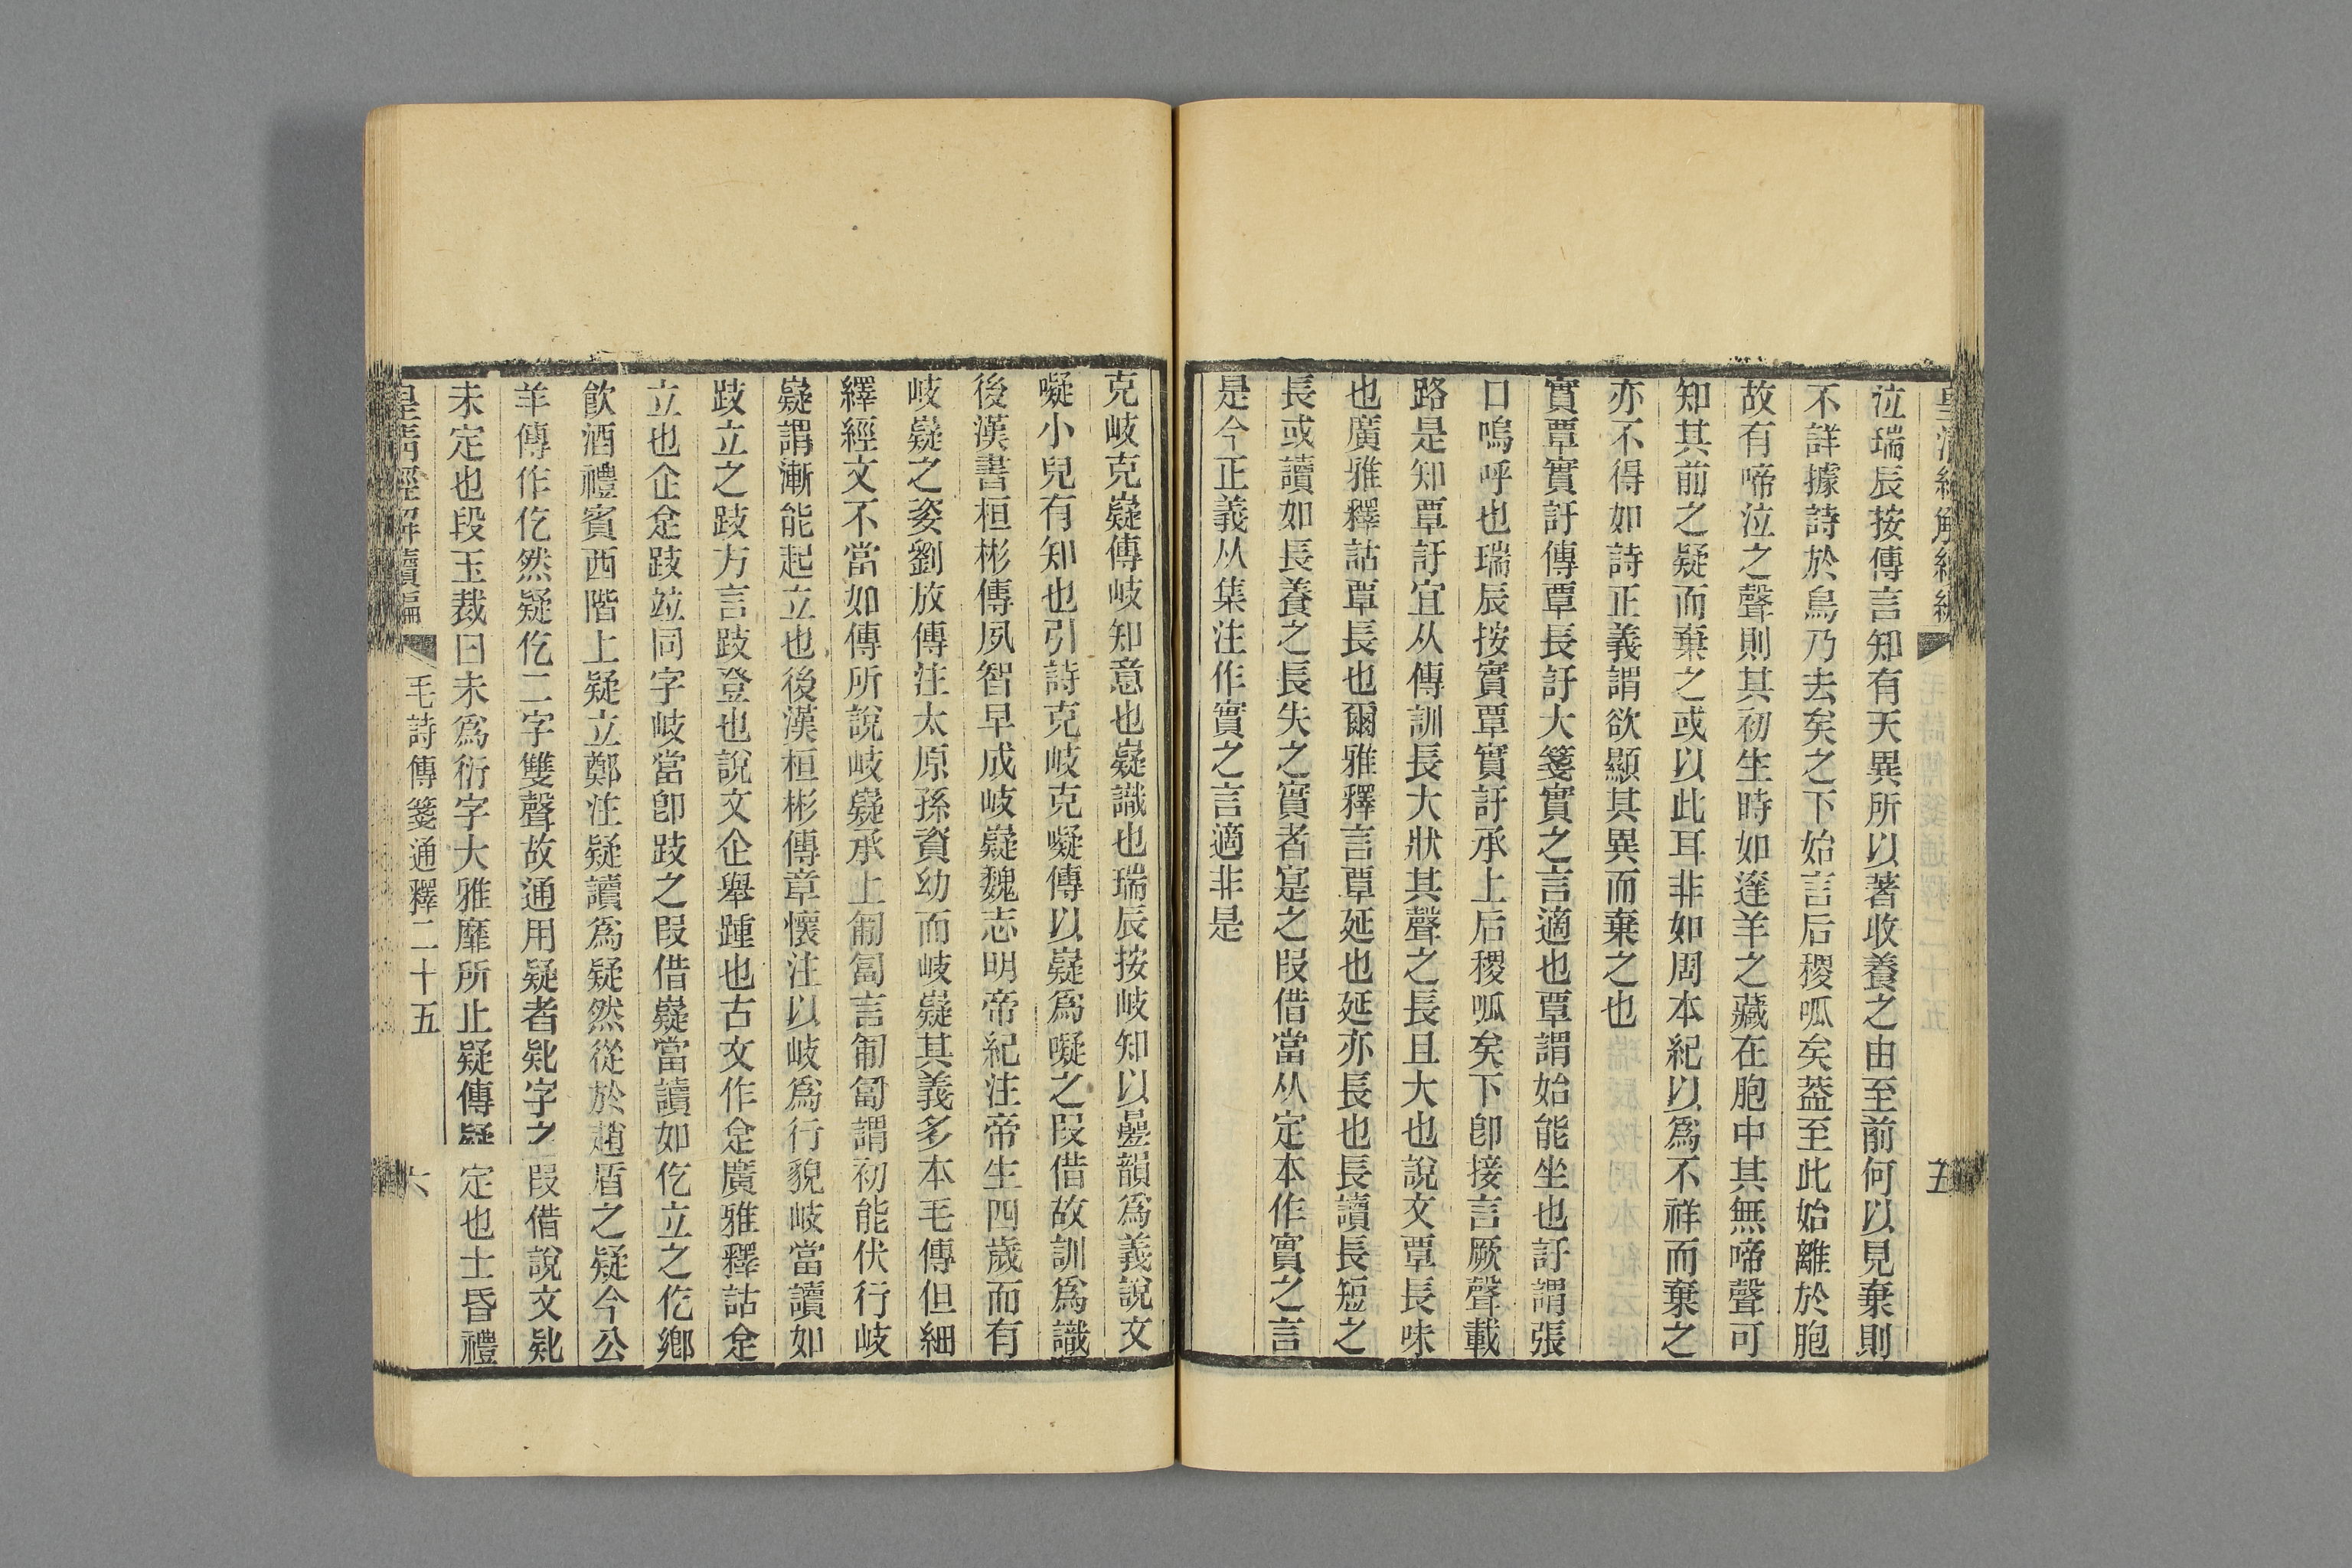 泣瑞辰按傳言知有天異所以著收養之由至前何以見棄則
不詳據詩於鳥乃去矣之下始言后稷呱矣葢至此始離於胞
故有啼泣之聲則其初生時如逹羊之藏在胞中其無啼聲可
知其前之疑而棄之或以此耳非如周本紀以爲不祥而棄之
亦不得如詩正義謂欲顯其異而棄之也
實覃實訏傳覃長訏大箋實之言適也覃謂始能坐也訏謂張
口嗚呼也瑞辰按實覃實訏承上后稷呱矣下卽接言厥聲載
路是知覃訏宜从傳訓長大狀其聲之長且大也說文覃長味
也廣雅釋詁覃長也爾雅釋言覃延也延亦長也長讀長短之
長或讀如長養之長失之實者寔之叚借當从定本作實之言
是今正義从集注作實之言適非是
五
克岐克嶷傳岐知意也嶷識也瑞辰按岐知以疉韻爲義說文
㘈小兒有知也引詩克岐克㘈傳以嶷爲㘈之叚借故訓爲識
後漢書桓彬傳夙智早成岐嶷魏志明帝紀注帝生四歲而有
岐嶷之姿劉放傳注太原孫資幼而岐嶷其義多本毛傳但細
繹經文不當如傳所說岐嶷承上匍匐言匍匐謂初能伏行岐
嶷謂漸能起立也後漢桓彬傳章懷注以岐爲行貌岐當讀如
跂立之跂方言跂登也說文企舉踵也古文作𠈮廣雅釋詁𠈮
立也企𠈮跂竝同字岐當卽跂之叚借嶷當讀如仡立之仡鄕
飮酒禮賓西階上疑立鄭注疑讀爲疑然從於趙盾之疑今公
羊傳作仡然疑仡二字雙聲故通用疑者𠤕字之叚借說文𠤕
未定也段玉裁曰未爲衍字大雅靡所止疑傳疑定也士昏禮
皇清經解續編
毛詩傳箋通釋二十五
六